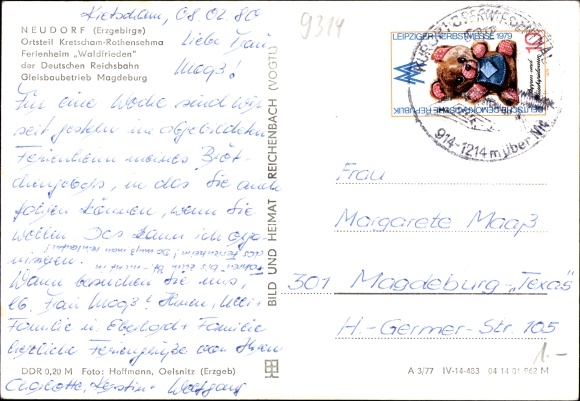 Kretscham, 08.02.80
NEUDORF (Erzgebirge)
Ortsteil Kretscham-Rothensehma
Ferienheim „Waldfrieden"
der Deutschen Reichsbahn
Gleisbaubetrieb Magdeburg
Liebe Frau
Maaß!
Für eine Woche sind wir
seit gestern im abgebildeten
Ferienheim meines
in das Sie auch
fahren können, wenn Sie
wollen. Das kann ich orga-
nisieren.
Wann besuchen Sie uns,
lb. Frau Maaß? Ihnen,
Familie u. Familie
herzliche Feriengrüße von Ihren
DDR 0,20 M Foto: Hoffmann, Oelsnitz (Erzgeb)
BILD UND HEIMAT REICHENBACH (VOGTL)
9314
LEIPZIGER HERBSTMESSE 1979
DEUTSCHE DEMOKRATISCHE REPUBLIK
10
914-1214 m über NN
Frau
Margarete Maaß
301 Magdeburg-„Texas"
H.-Germer-Str. 105
1.-
A 3/77 IV-14-483 04 14 01 062 M